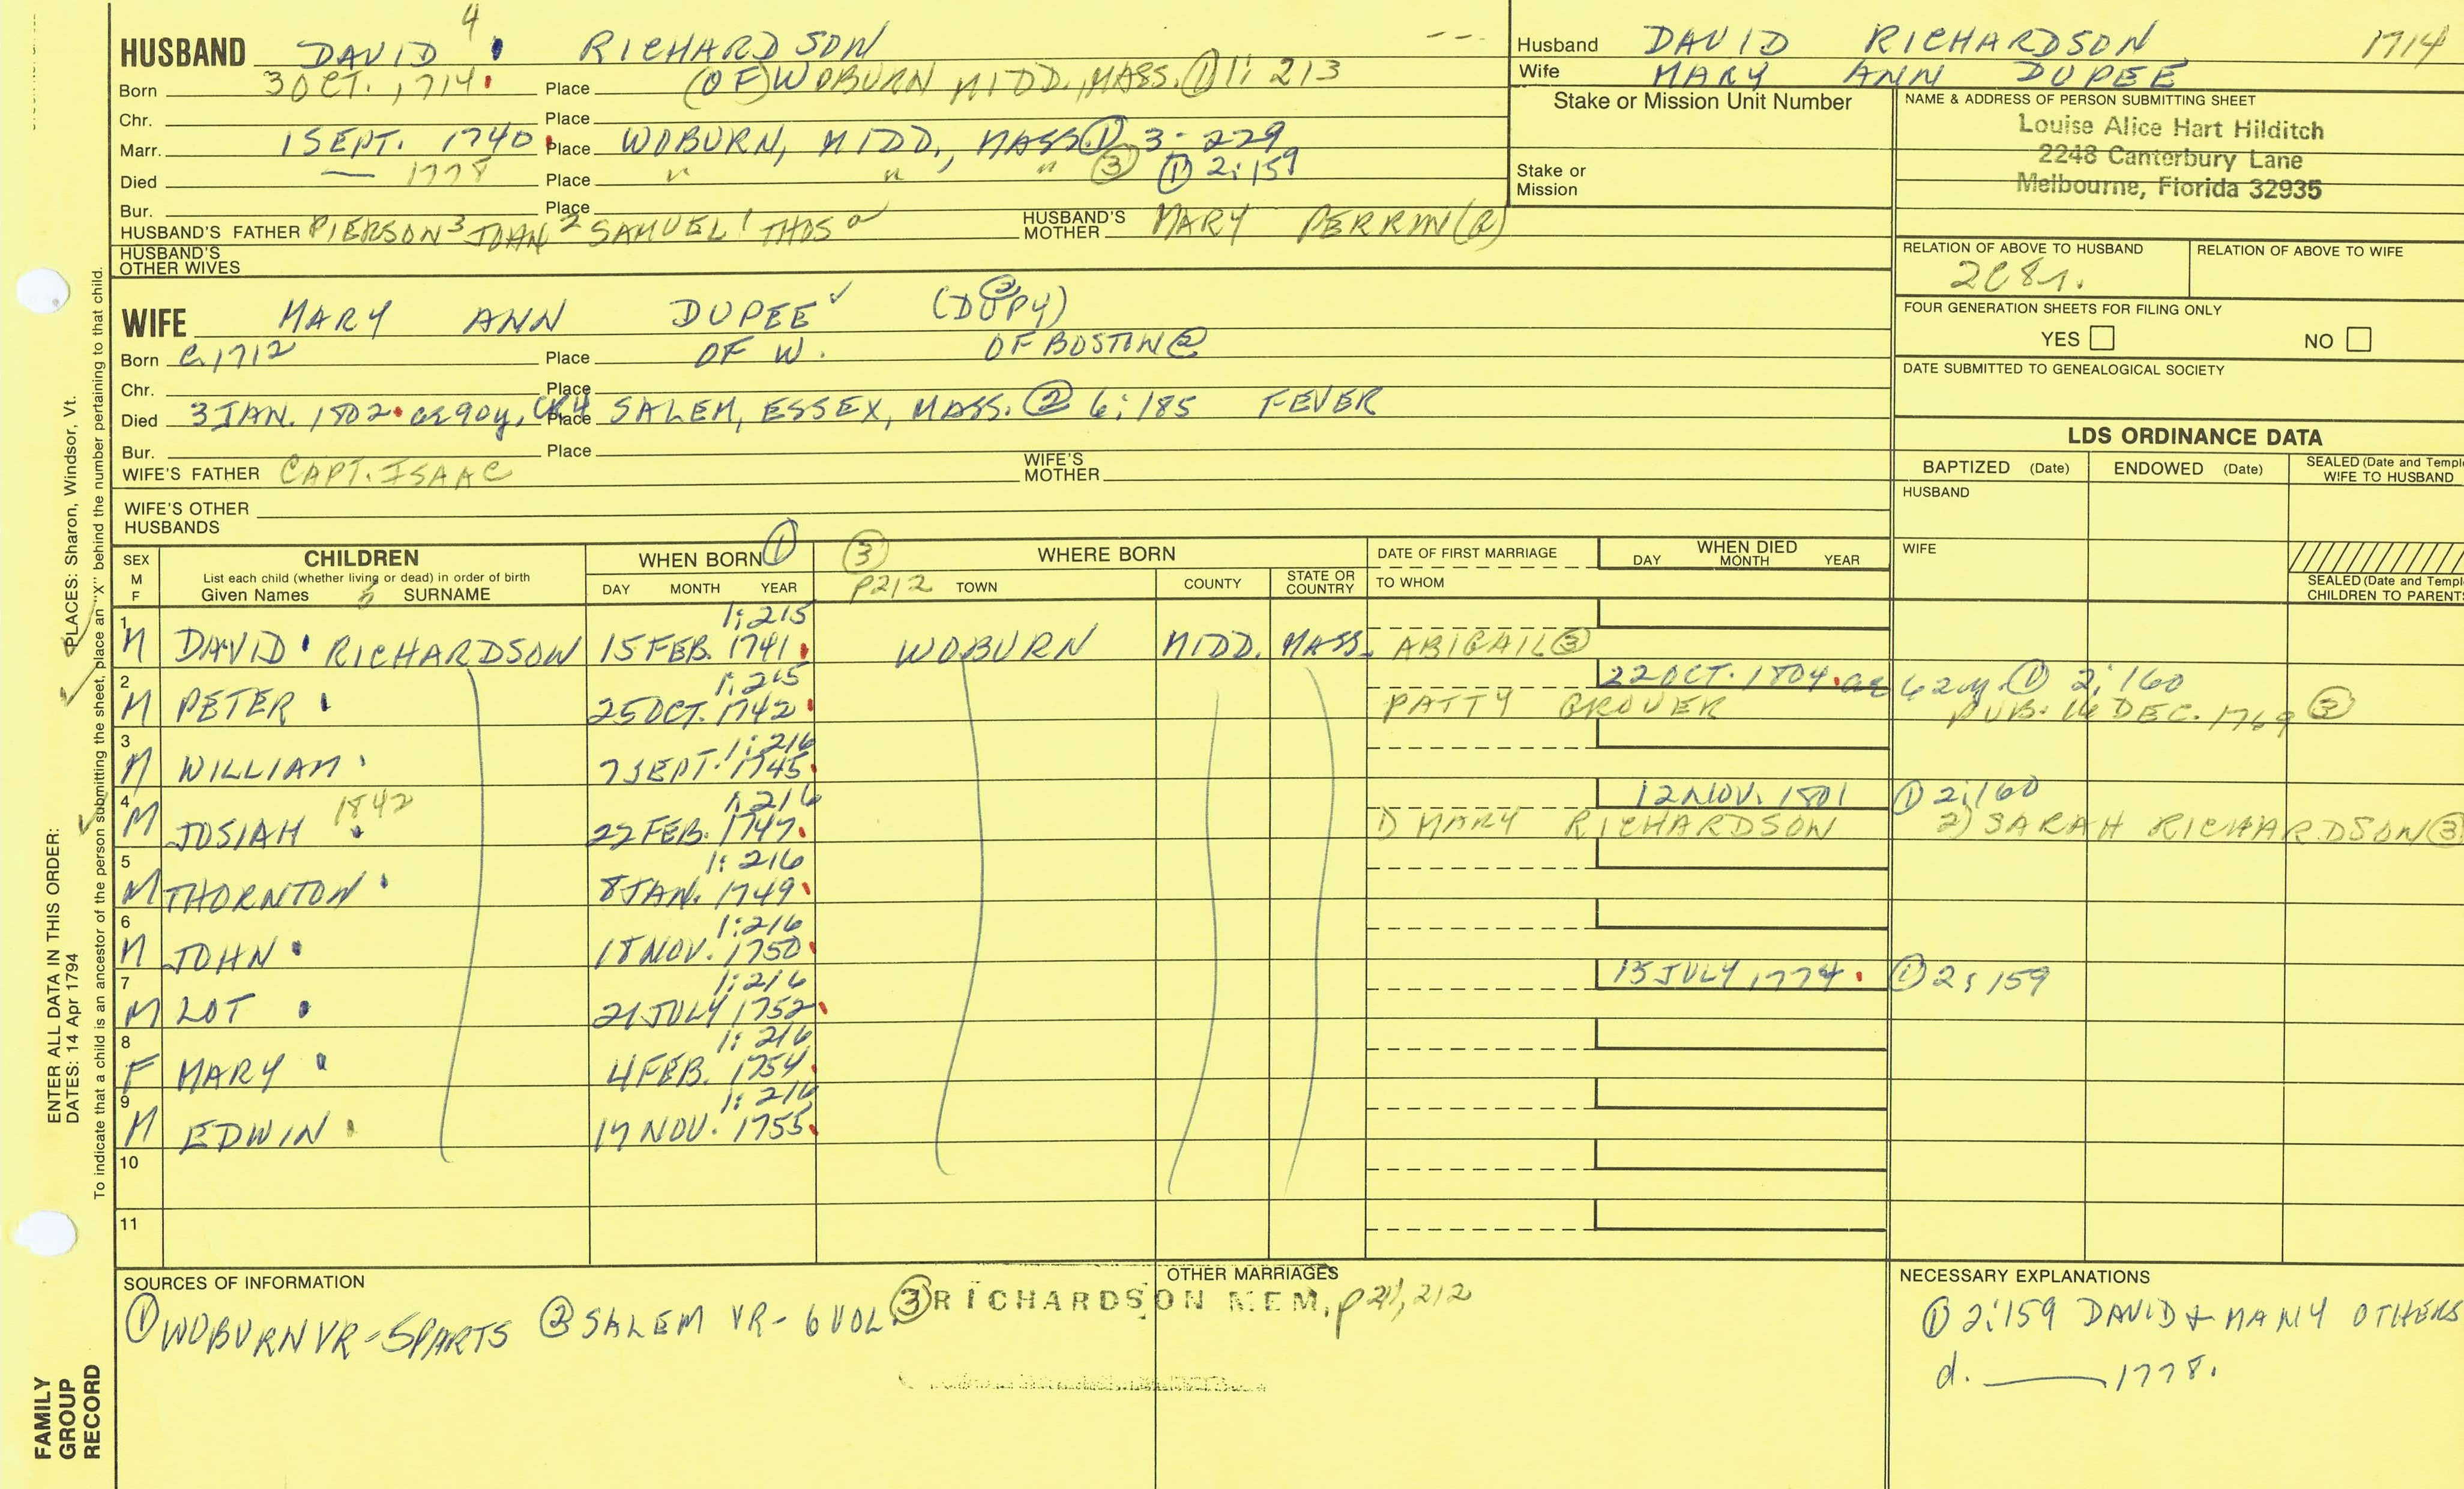 4
HUSBAND DAVID RICHARDSON
Born 3 OCT. 1714. Place (OF) WOBURN MIDD., MASS. ① 1: 213
Chr. Place
Marr. 1 SEPT. 1740. Place WOBURN, MIDD., MASS ① 3: 229
Died — 1778 Place " " " ③ ① 2:159
Bur. Place
HUSBAND'S FATHER PIERSON 3 JOHN 2 SAMUEL 1 THOS HUSBAND'S MOTHER MARY PERRIN (R)
HUSBAND'S OTHER WIVES
WIFE MARY ANN DUPEE (DUPY) ②
Born C. 1712 Place OF W. OF BOSTON ②
Chr. Place
Died 3 JAN. 1802. ae 90y, CR4 Place SALEM, ESSEX, MASS. ② 6:185 FEVER
Bur. Place
WIFE'S FATHER CAPT. ISAAC WIFE'S MOTHER
WIFE'S OTHER HUSBANDS
Husband DAVID RICHARDSON 1714
Wife MARY ANN DUPEE
Stake or Mission Unit Number
Stake or Mission
NAME & ADDRESS OF PERSON SUBMITTING SHEET
Louise Alice Hart Hilditch
2248 Canterbury Lane
Melbourne, Florida 32935
RELATION OF ABOVE TO HUSBAND RELATION OF ABOVE TO WIFE
2C8r.
FOUR GENERATION SHEETS FOR FILING ONLY
YES NO
DATE SUBMITTED TO GENEALOGICAL SOCIETY
LDS ORDINANCE DATA
BAPTIZED (Date) ENDOWED (Date) SEALED (Date and Templ WIFE TO HUSBAND
HUSBAND
WIFE
SEALED (Date and Templ CHILDREN TO PARENTS
SEX M F CHILDREN WHEN BORN ① ③ WHERE BORN DATE OF FIRST MARRIAGE WHEN DIED
List each child (whether living or dead) in order of birth
Given Names 5 SURNAME DAY MONTH YEAR P212 TOWN COUNTY STATE OR COUNTRY TO WHOM DAY MONTH YEAR
1:215
1 M DAVID RICHARDSON 15 FEB. 1741. WOBURN MIDD. MASS. ABIGAIL ③
1:215 22 OCT. 1804. ae 62y. ① 2:160
2 M PETER 25 OCT. 1742. PATTY GROVER PUB. 16 DEC. 1769 ③
1:216
3 M WILLIAM 7 SEPT. 1745.
1842 1:216 12 NOV. 1801 ① 2:160
4 M JOSIAH 22 FEB. 1747. 1) MARY RICHARDSON 2) SARAH RICHARDSON ③
1:216
5 M THORNTON 8 JAN. 1749.
1:216
6 M JOHN 18 NOV. 1750.
1:216 15 JULY 1774. ① 2:159
7 M LOT 21 JULY 1752.
1:216
8 F MARY 4 FEB. 1754.
1:216
9 M EDWIN 17 NOV. 1755.
10
11
SOURCES OF INFORMATION OTHER MARRIAGES NECESSARY EXPLANATIONS
① WOBURN VR-5PARTS ② SALEM VR-6VOL ③ RICHARDSON MEM, p 211, 212
① 2:159 DAVID + MANY OTHERS
d. —— 1778.
PLACES: Sharon, Windsor, Vt.
ENTER ALL DATA IN THIS ORDER:
DATES: 14 Apr 1794
To indicate that a child is an ancestor of the person submitting the sheet, place an "X" behind the number pertaining to that child.
FAMILY
GROUP
RECORD